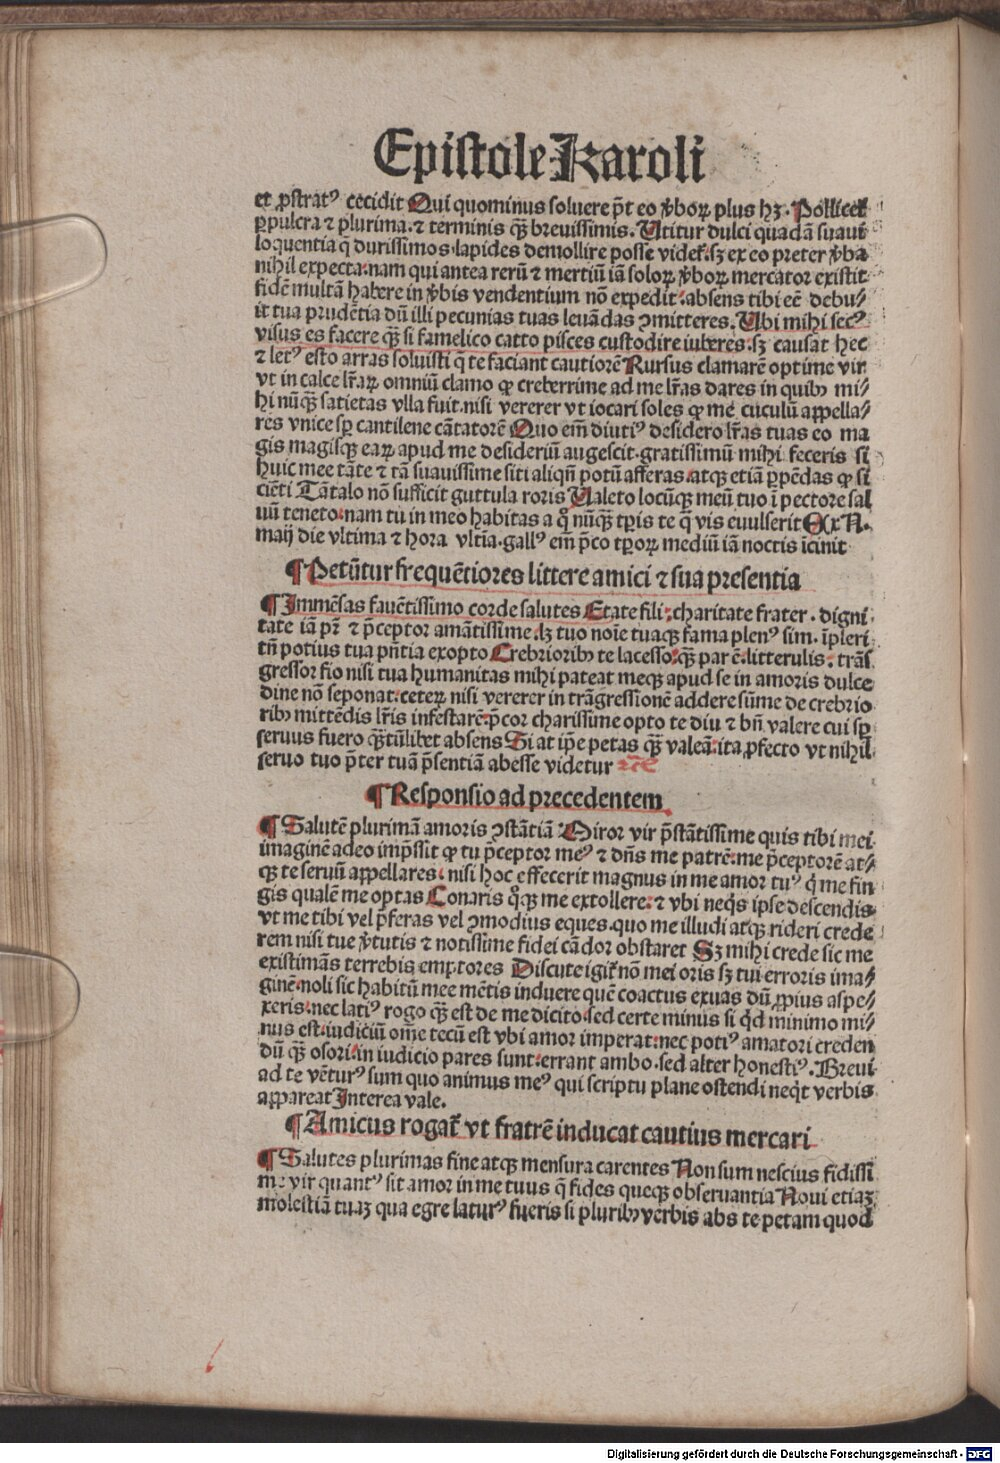 Epistole Karoli
et ꝓstratꝰ cecidit Qui quominus soluere p̄t eo v̓boꝝ plus hꝫ. Pollicet̉
ꝑpulcra ⁊ plurima. ⁊ terminis qꝫ̄ breuissimis. Utitur dulci quadā suaui
loquentia q̄ durissimos lapides demollire posse videt̉. sꝫ ex eo preter v̓ba
nihil expecta. nam qui antea rerū ⁊ mertiū iā soloꝝ v̓boꝝ mercator existit
fidē multā habere in v̓bis vendentium nō expedit. absens tibi eē debu⸗
it tua prudētia dū illi pecunias tuas leuādas ꝯmitteres. Ubi mihi secꝰ
visus es facere qꝫ̄ si famelico catto pisces custodire iuberes. sꝫ causat hec
⁊ letꝰ esto arras soluisti q̄ te faciant cautiorē Rursus clamarē optime vir
vt in calce lr̄aꝝ omniū clamo ꝙ creberrime ad me lr̄as dares in quibꝫ mi⸗
hi nūqꝫ̄ satietas vlla fuit. nisi vererer vt iocari soles ꝙ me cuculū appella⸗
res vnice sꝑ cantilene cātatorē Quo em̄ diutiꝰ desidero lr̄as tuas eo ma
gis magisqꝫ eaꝝ apud me desideriū augescit. gratissimū mihi feceris si
huic mee tāte ⁊ tā suauissime siti aliqn̄ potū afferas. atqꝫ etiā ꝑpēdas ꝙ si
ciēti Tātalo nō sufficit guttula roris Ualeto locūqꝫ meū tuo ī pectore sal
uū teneto. nam tu in meo habitas a q̊ nūqꝫ̄ tꝑis te q̄ vis euulserit Ex N.
maij die vltima ⁊ hora vltīa. gallꝰ em̄ p̄co tꝑoꝝ mediū iā noctis īcinit
¶ Petūtur frequētiores littere amici ⁊ sua presentia
¶ Immēsas fauētissimo corde salutes Etate fili. charitate frater. digni
tate iā pr̄ ⁊ p̄ceptor amātissime. lꝫ tuo noīe tuaqꝫ fama plenꝰ sim. īpleri
tn̄ potius tua pn̄tia exopto Crebrioribꝫ te lacesso. qꝫ̄ par ē. litterulis. trāſ
gressor fio nisi tua humanitas mihi pateat meqꝫ apud se in amoris dulce
dine nō seponat. ceteꝝ nisi vererer in trāgressionē addere sūme de crebrio
ribꝫ mittēdis lr̄is infestarē. p̄cor charissime opto te diu ⁊ bn̄ valere cui sꝑ
seruus fuero qꝫ̄tūlibet absens Si at ip̄e petas qꝫ̄ valeā. ita ꝓfecto vt nihil
seruo tuo p̄ter tuā p̄sentiā abesse videtur
¶ Responsio ad precedentem
¶ Salutē plurimā amoris ꝯstātiā Miror vir p̄stātissime quis tibi mei
imaginē adeo imp̄ssit ꝙ tu p̄ceptor meꝰ ⁊ dn̄s me patrē. me p̄ceptorē at⸗
qꝫ te seruū appellares. nisi hoc effecerit magnus in me amor tuꝰ q̇ me fin
gis qualē me optas Conaris q̊qꝫ me extollere. ⁊ vbi neq̇s ipse descendis
vt me tibi vel p̄feras vel ꝯmodius eques. quo me illudi atqꝫ rideri crede
rem nisi tue v̓tutis ⁊ notissime fidei cādor obstaret Sꝫ mihi crede sic me
existimās terrebis emptores Discute igit̉ nō mei oris sꝫ tui erroris ima⸗
ginē. noli sic habitū mee mētis induere quē coactus exuas dū ꝓpius aspe⸗
xeris. nec latiꝰ rogo qꝫ̄ est de me dicito. sed certe minus si q̇d minimo mi⸗
nus est. iudiciū om̄e tecū est vbi amor imperat. nec potiꝰ amatori creden
dū qꝫ̄ osori. in iudicio pares sunt. errant ambo. sed alter honestiꝰ. Breui
ad te vēturꝰ sum quo animus meꝰ qui scriptu plane ostendi neq̇t verbis
appareat Interea vale.
¶ Amicus rogat̉ vt fratrē inducat cautius mercari
¶ Salutes plurimas fine atqꝫ mensura carentes Non sum nescius fidissi
me vir quantꝰ sit amor in me tuus q̄ fides queqꝫ obseruantia Noui etiaꝫ
molestiā tuaꝫ qua egre laturꝰ fueris si pluribꝫ verbis abs te petam quod
Digitalisierung gefördert durch die Deutsche Forschungsgemeinschaft - DFG